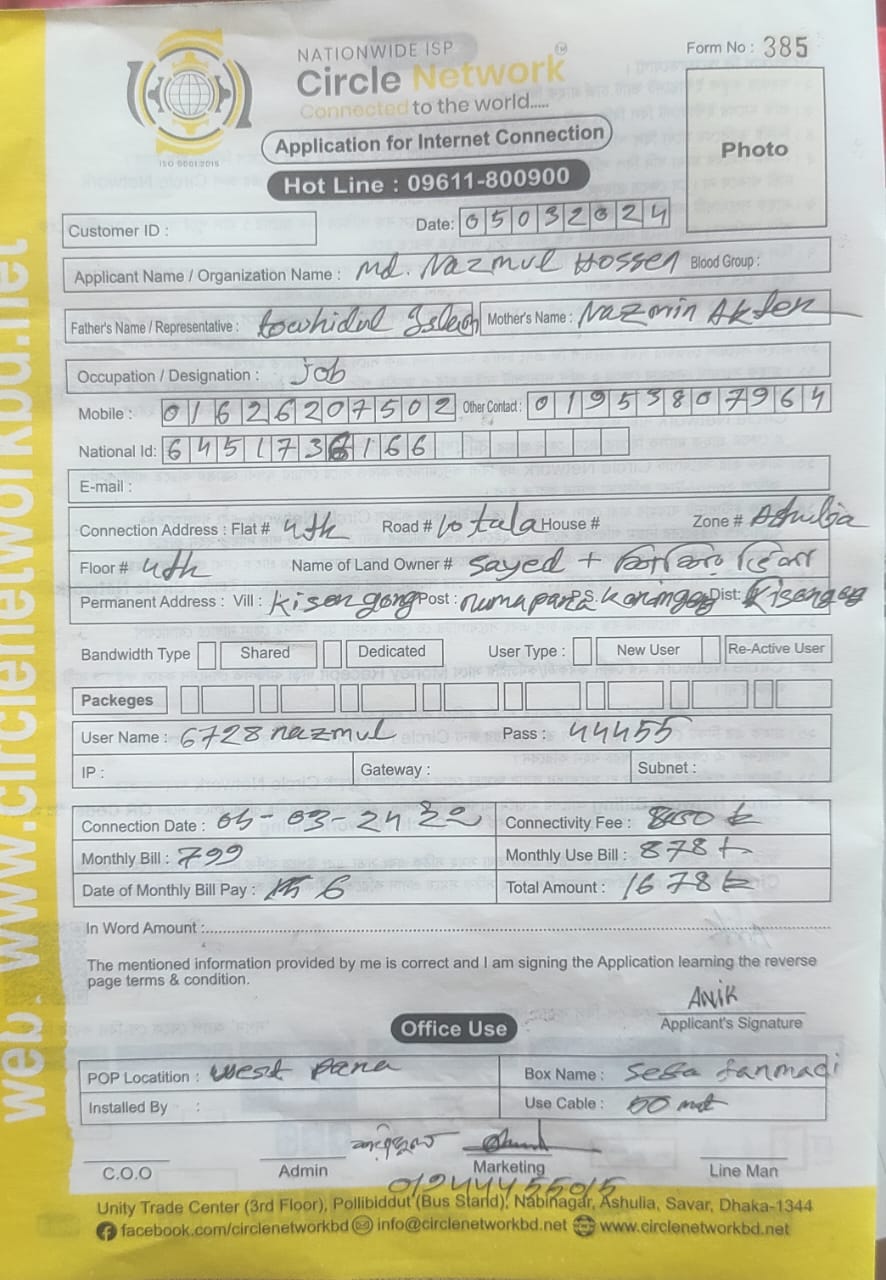 NATIONWIDE ISP
Form No : 385
Circle Network
Connected to the world.....
ISO 9001:2015
Application for Internet Connection
Photo
Hot Line : 09611-800900
Customer ID :
Date: 05032024
Applicant Name / Organization Name : Md. Nazmul Hossen Blood Group :
Father's Name / Representative : towhidul Islam Mother's Name : Nazmin Akter
Occupation / Designation : job
Mobile : 01626207502 Other Contact : 01953807964
National Id: 6451736166
E-mail :
Connection Address : Flat # 4th Road # 10 tala House # Zone # Ashulia
Floor # 4th Name of Land Owner # Sayed +
Permanent Address : Vill : Kisengong Post : P.S. Dist:
Bandwidth Type Shared Dedicated User Type : New User Re-Active User
Packeges
User Name : 6728nazmul Pass : 44455
IP : Gateway : Subnet :
Connection Date : 05-03-24 Connectivity Fee :
Monthly Bill : 799 Monthly Use Bill : 878 t
Date of Monthly Bill Pay : 6 Total Amount : 1678 t
In Word Amount :
The mentioned information provided by me is correct and I am signing the Application learning the reverse
page terms & condition.
ANIK
Applicant's Signature
Office Use
POP Locatition : west para Box Name :
Installed By : Use Cable : 50
C.O.O Admin Marketing Line Man
Unity Trade Center (3rd Floor), Pollibiddut (Bus Stand), Nabinagar, Ashulia, Savar, Dhaka-1344
facebook.com/circlenetworkbd info@circlenetworkbd.net www.circlenetworkbd.net
web: www.circlenetworkbd.net